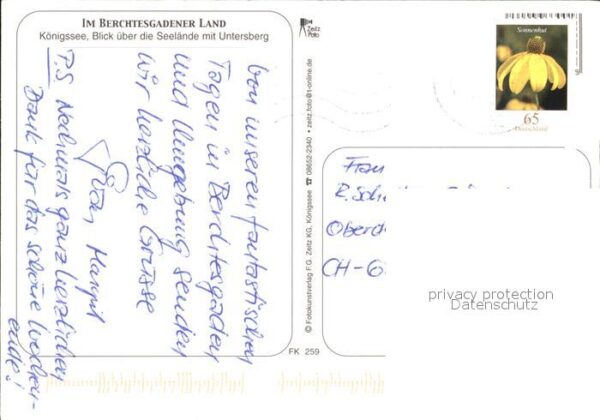 IM BERCHTESGADENER LAND
Königssee, Blick über die Seelände mit Untersberg
Von unseren fantastischen
Tagen in Berchtesgaden
und Umgebung senden
wir herzliche Grüsse
Margrit
P.S Nochmals ganz herzlichen
Dank für das schöne Wochen-
ende!
Zeitz
Foto
© Fotokunstverlag F.G. Zeitz KG, Königssee ☎ 08652-2340 • zeitz.foto@t-online.de
FK 259
Sonnenhut
65
Deutschland
Frau
R. Sch
Oberd
CH-6
privacy protection
Datenschutz